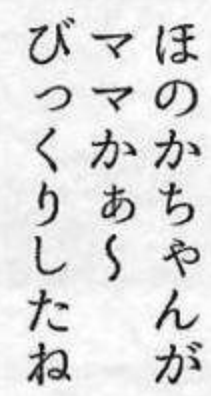 ほのかちゃんが
ママかぁ～
びっくりしたね